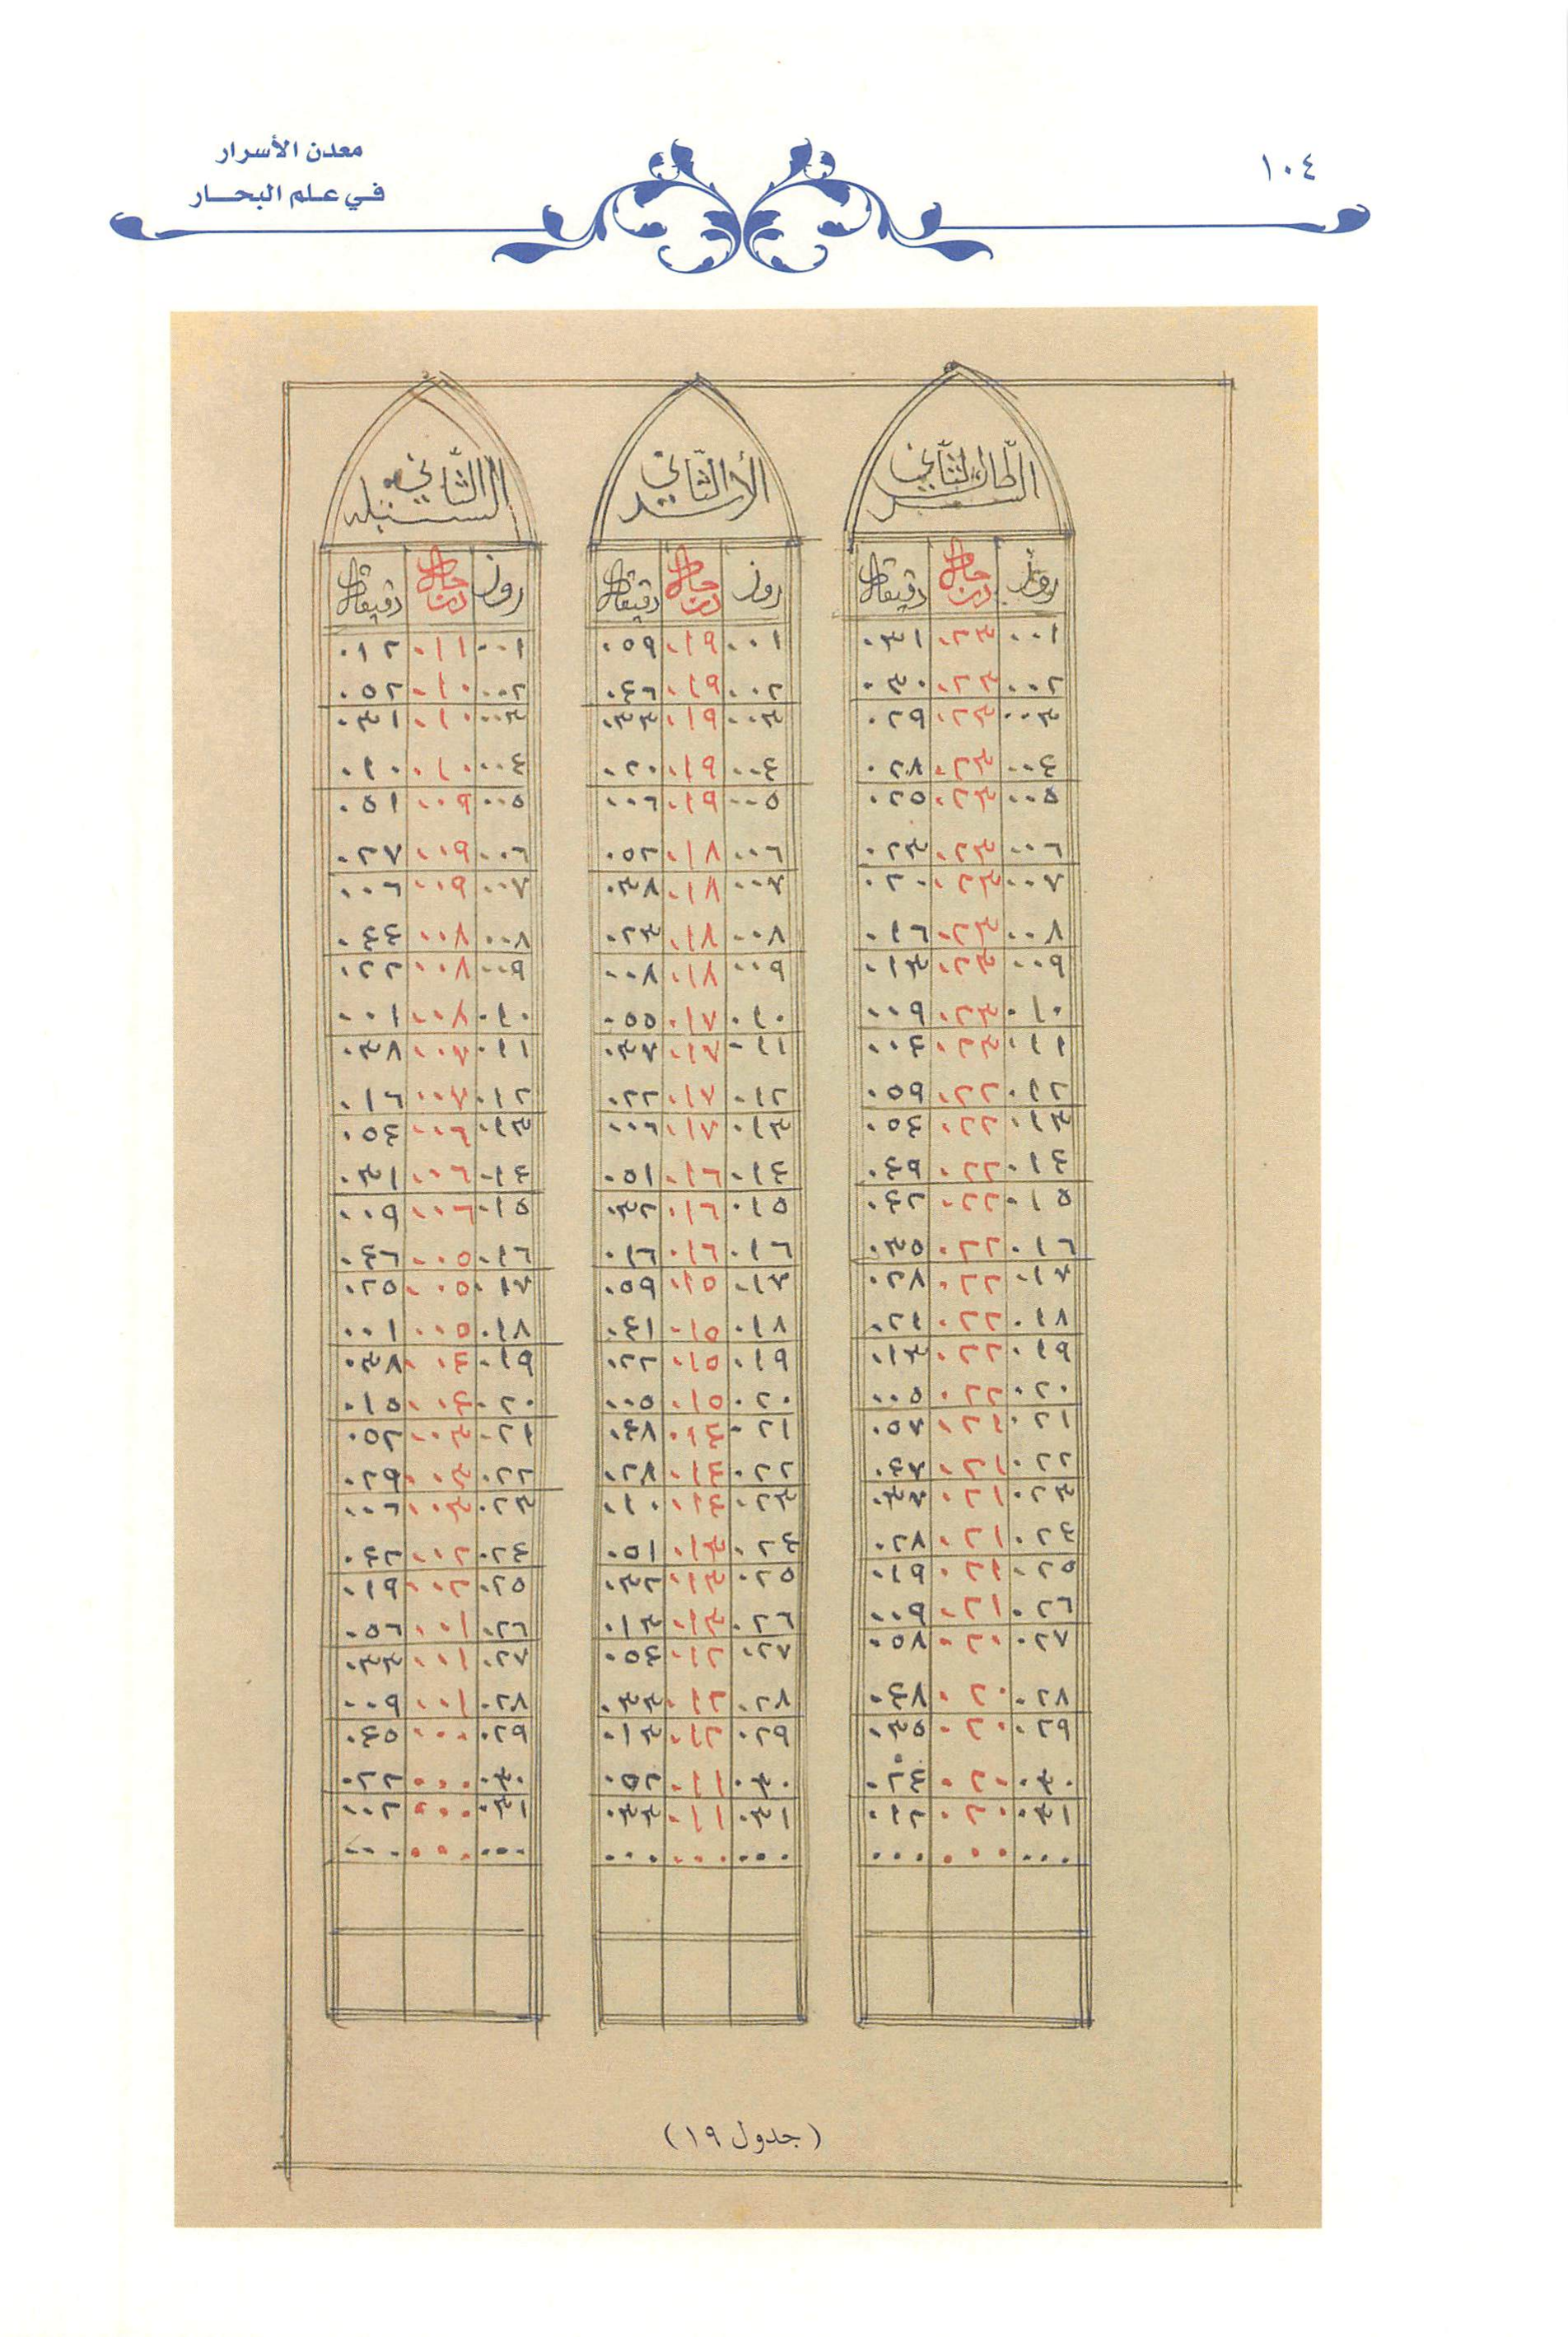 ١٠٤
معدن الأسرار
في علم البحار
السرطان الثاني
روز درجات دقيقات
٠٠١ ٠٢٣ ٠٣١
٠٠٢ ٠٢٣ ٠٣٠
٠٠٣ ٠٢٣ ٠٢٩
٠٠٤ ٠٢٣ ٠٢٨
٠٠٥ ٠٢٣ ٠٢٥
٠٠٦ ٠٢٣ ٠٢٣
٠٠٧ ٠٢٣ ٠٢٠
٠٠٨ ٠٢٣ ٠١٦
٠٠٩ ٠٢٣ ٠١٣
٠١٠ ٠٢٣ ٠٠٩
٠١١ ٠٢٣ ٠٠٤
٠١٢ ٠٢٢ ٠٥٩
٠١٣ ٠٢٢ ٠٥٤
٠١٤ ٠٢٢ ٠٤٩
٠١٥ ٠٢٢ ٠٤٢
٠١٦ ٠٢٢ ٠٣٥
٠١٧ ٠٢٢ ٠٢٨
٠١٨ ٠٢٢ ٠٢١
٠١٩ ٠٢٢ ٠١٣
٠٢٠ ٠٢٢ ٠٠٥
٠٢١ ٠٢١ ٠٥٧
٠٢٢ ٠٢١ ٠٤٨
٠٢٣ ٠٢١ ٠٣٧
٠٢٤ ٠٢١ ٠٢٨
٠٢٥ ٠٢١ ٠١٩
٠٢٦ ٠٢١ ٠٠٩
٠٢٧ ٠٢٠ ٠٥٨
٠٢٨ ٠٢٠ ٠٤٨
٠٢٩ ٠٢٠ ٠٣٥
٠٣٠ ٠٢٠ ٠٢٤
٠٣١ ٠٢٠ ٠١٢
٠٠٠ ٠٠٠ ٠٠٠
الأسد الثاني
روز درجات دقيقات
٠٠١ ٠١٩ ٠٥٩
٠٠٢ ٠١٩ ٠٤٦
٠٠٣ ٠١٩ ٠٣٣
٠٠٤ ٠١٩ ٠٢٠
٠٠٥ ٠١٩ ٠٠٦
٠٠٦ ٠١٨ ٠٥٢
٠٠٧ ٠١٨ ٠٣٨
٠٠٨ ٠١٨ ٠٢٣
٠٠٩ ٠١٨ ٠٠٨
٠١٠ ٠١٧ ٠٥٥
٠١١ ٠١٧ ٠٣٧
٠١٢ ٠١٧ ٠٢٢
٠١٣ ٠١٧ ٠٠٦
٠١٤ ٠١٦ ٠٥١
٠١٥ ٠١٦ ٠٣٢
٠١٦ ٠١٦ ٠١٦
٠١٧ ٠١٥ ٠٥٩
٠١٨ ٠١٥ ٠٤١
٠١٩ ٠١٥ ٠٢٢
٠٢٠ ٠١٥ ٠٠٥
٠٢١ ٠١٤ ٠٤٨
٠٢٢ ٠١٤ ٠٢٨
٠٢٣ ٠١٤ ٠١٠
٠٢٤ ٠١٣ ٠٥١
٠٢٥ ٠١٣ ٠٣٢
٠٢٦ ٠١٣ ٠١٣
٠٢٧ ٠١٢ ٠٥٤
٠٢٨ ٠١٢ ٠٣٣
٠٢٩ ٠١٢ ٠١٣
٠٣٠ ٠١١ ٠٥٢
٠٣١ ٠١١ ٠٣٣
٠٠٠ ٠٠٠ ٠٠٠
السنبله الثاني
روز درجات دقيقات
٠٠١ ٠١١ ٠١٢
٠٠٢ ٠١٠ ٠٥٢
٠٠٣ ٠١٠ ٠٣١
٠٠٤ ٠١٠ ٠١٠
٠٠٥ ٠٠٩ ٠٥١
٠٠٦ ٠٠٩ ٠٢٧
٠٠٧ ٠٠٩ ٠٠٦
٠٠٨ ٠٠٨ ٠٤٤
٠٠٩ ٠٠٨ ٠٢٢
٠١٠ ٠٠٨ ٠٠١
٠١١ ٠٠٧ ٠٣٨
٠١٢ ٠٠٧ ٠١٦
٠١٣ ٠٠٦ ٠٥٤
٠١٤ ٠٠٦ ٠٣١
٠١٥ ٠٠٦ ٠٠٩
٠١٦ ٠٠٥ ٠٤٦
٠١٧ ٠٠٥ ٠٢٥
٠١٨ ٠٠٥ ٠٠١
٠١٩ ٠٠٤ ٠٣٨
٠٢٠ ٠٠٤ ٠١٥
٠٢١ ٠٠٣ ٠٥٢
٠٢٢ ٠٠٣ ٠٢٩
٠٢٣ ٠٠٣ ٠٠٦
٠٢٤ ٠٠٢ ٠٤٢
٠٢٥ ٠٠٢ ٠١٩
٠٢٦ ٠٠١ ٠٥٦
٠٢٧ ٠٠١ ٠٣٣
٠٢٨ ٠٠١ ٠٠٩
٠٢٩ ٠٠٠ ٠٤٥
٠٣٠ ٠٠٠ ٠٢٢
٠٣١ ٠٠٠ ٠٠٢
٠٠٠ ٠٠٠ ٠٠٠
(جدول ١٩)